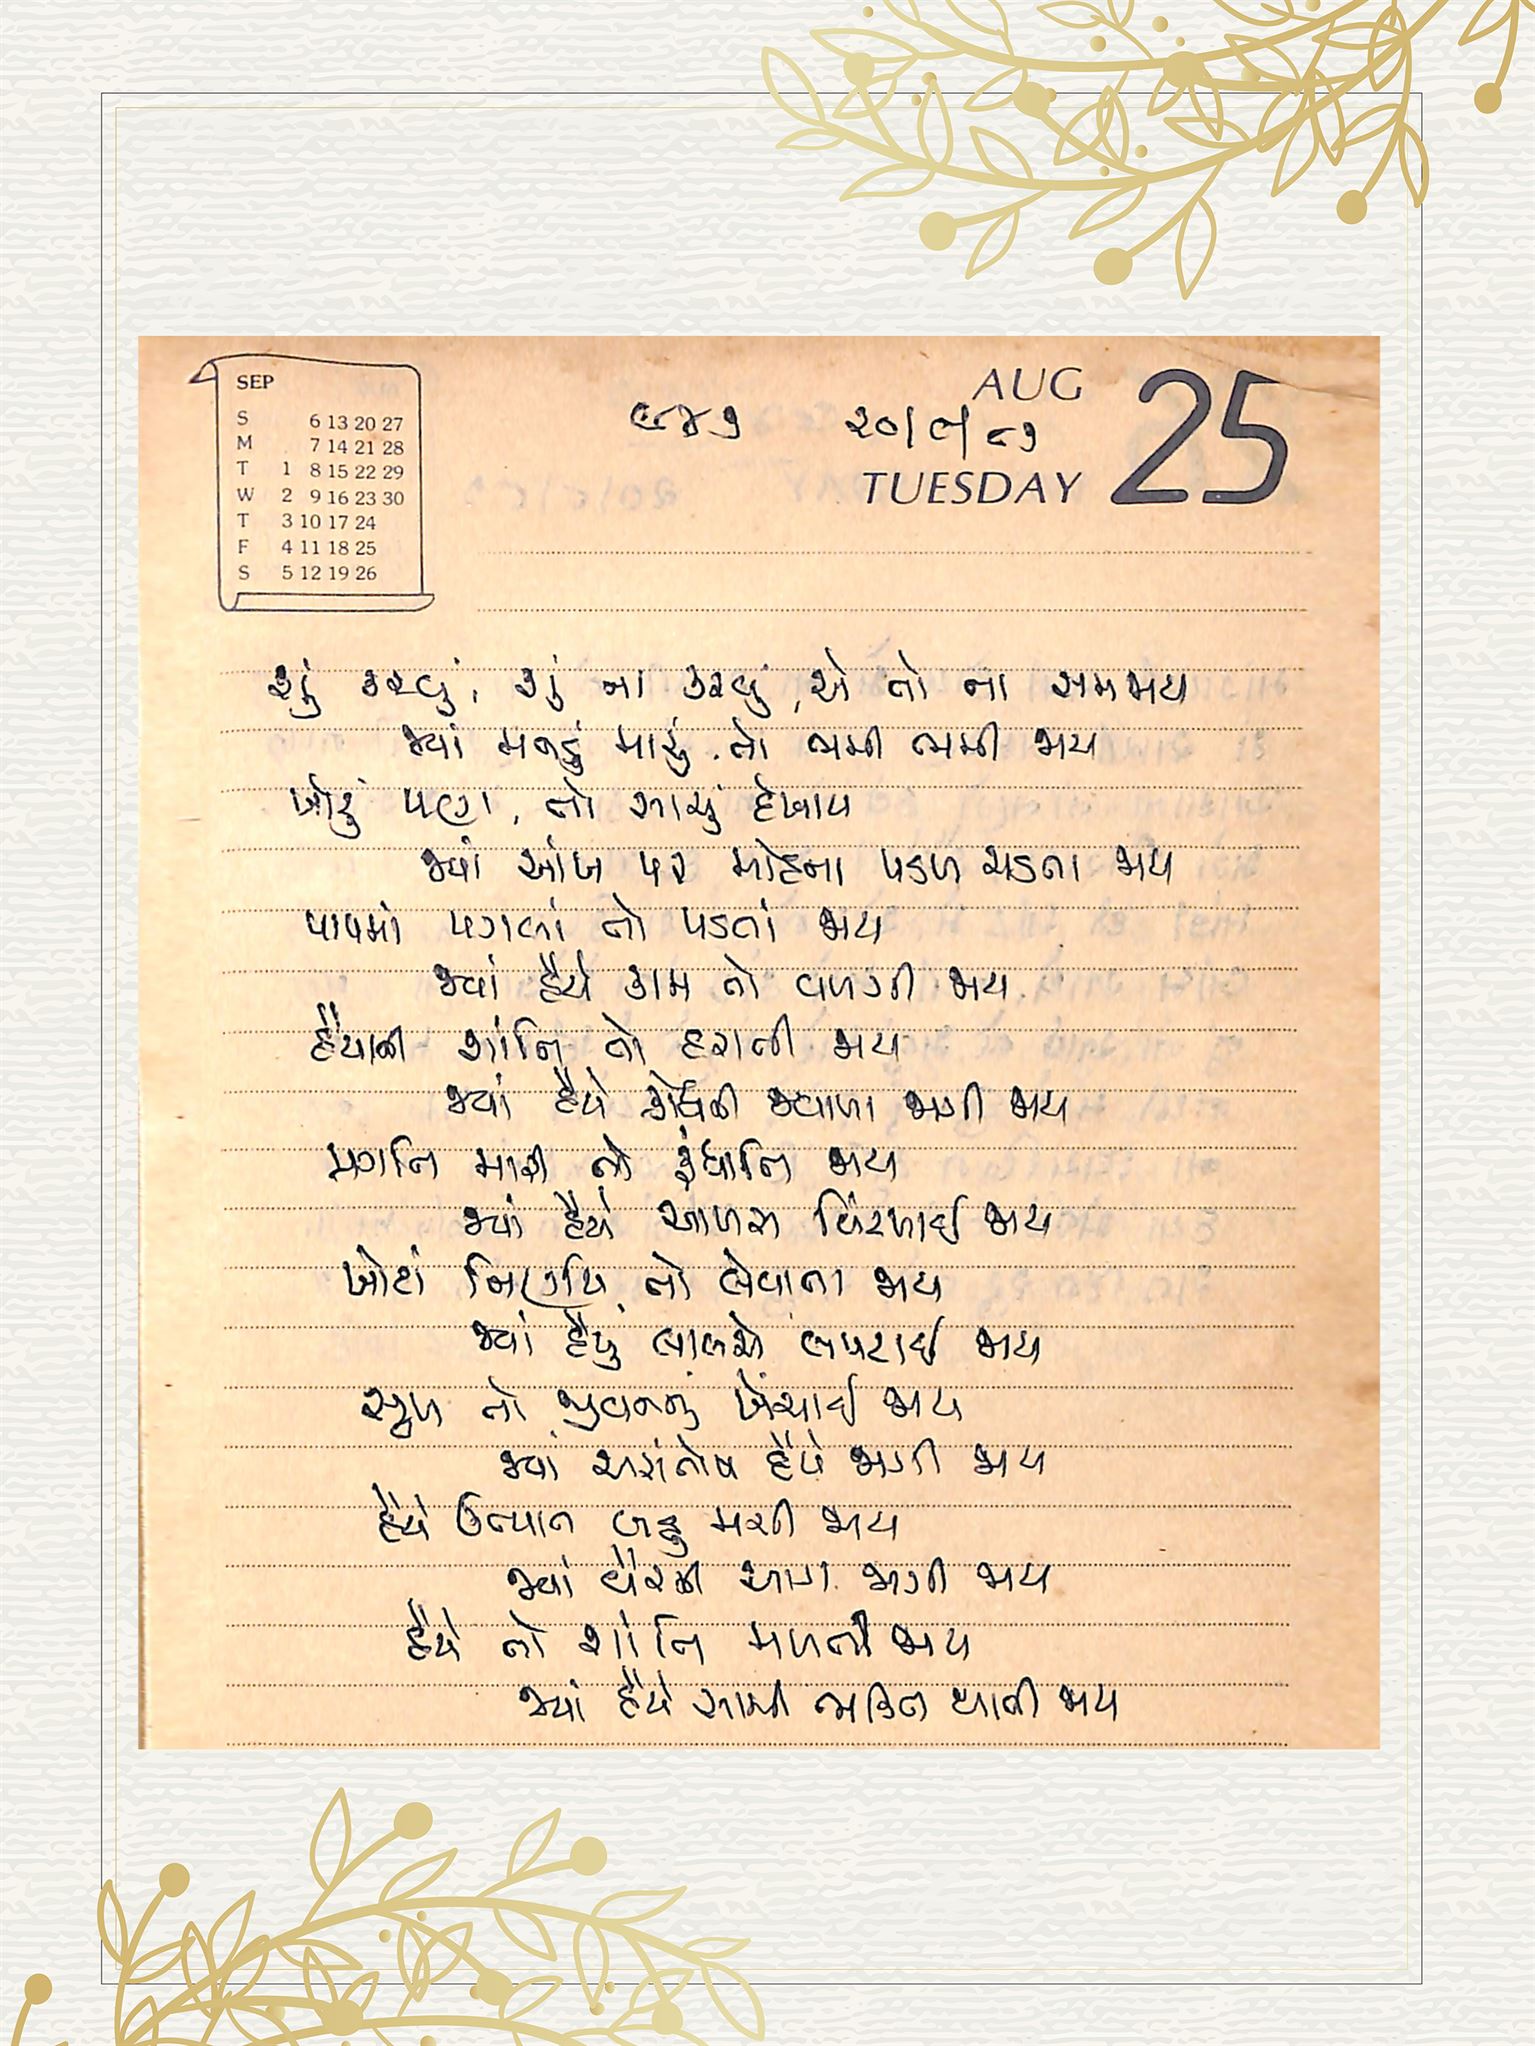 SEP
S 6 13 20 27
M 7 14 21 28
T 1 8 15 22 29
W 2 9 16 23 30
T 3 10 17 24
F 4 11 18 25
S 5 12 19 26
AUG 25
૯૪૭ ૨૦/૮/૮૭
TUESDAY
શું કરવું, શું ના કરવું, એ તો ના સમજાય
જ્યાં મનડું મારું તો ભમી ભમી જાય
ખોટું પણ, તો સાચું દેખાય
જ્યાં આંખ પર મોહના પડળ ચડતા જાય
પાપમાં પગલાં તો પડતાં જાય
જ્યાં હૈયે કામ તો વળગી જાય
હૈયાની શાંતિ તો હરાતી જાય
જ્યાં હૈયે ક્રોધની જ્વાળા જાગી જાય
પ્રગતિ મારી તો રૂંધાતિ જાય
જ્યાં હૈયે આળસ વિંટળાઈ જાય
ખોટાં નિર્ણય તો લેવાતા જાય
જ્યાં હૈયું લાલસે લપટાઈ જાય
સુખ તો જીવનનું ખેંચાઈ જાય
જ્યાં અસંતોષ હૈયે જાગી જાય
હૈયે ઉત્પાત બહુ મચી જાય
જ્યાં વૈરની આગ જાગી જાય
હૈયે તો શાંતિ મળતી જાય
જ્યાં હૈયે સાચી ભક્તિ થાતી જાય